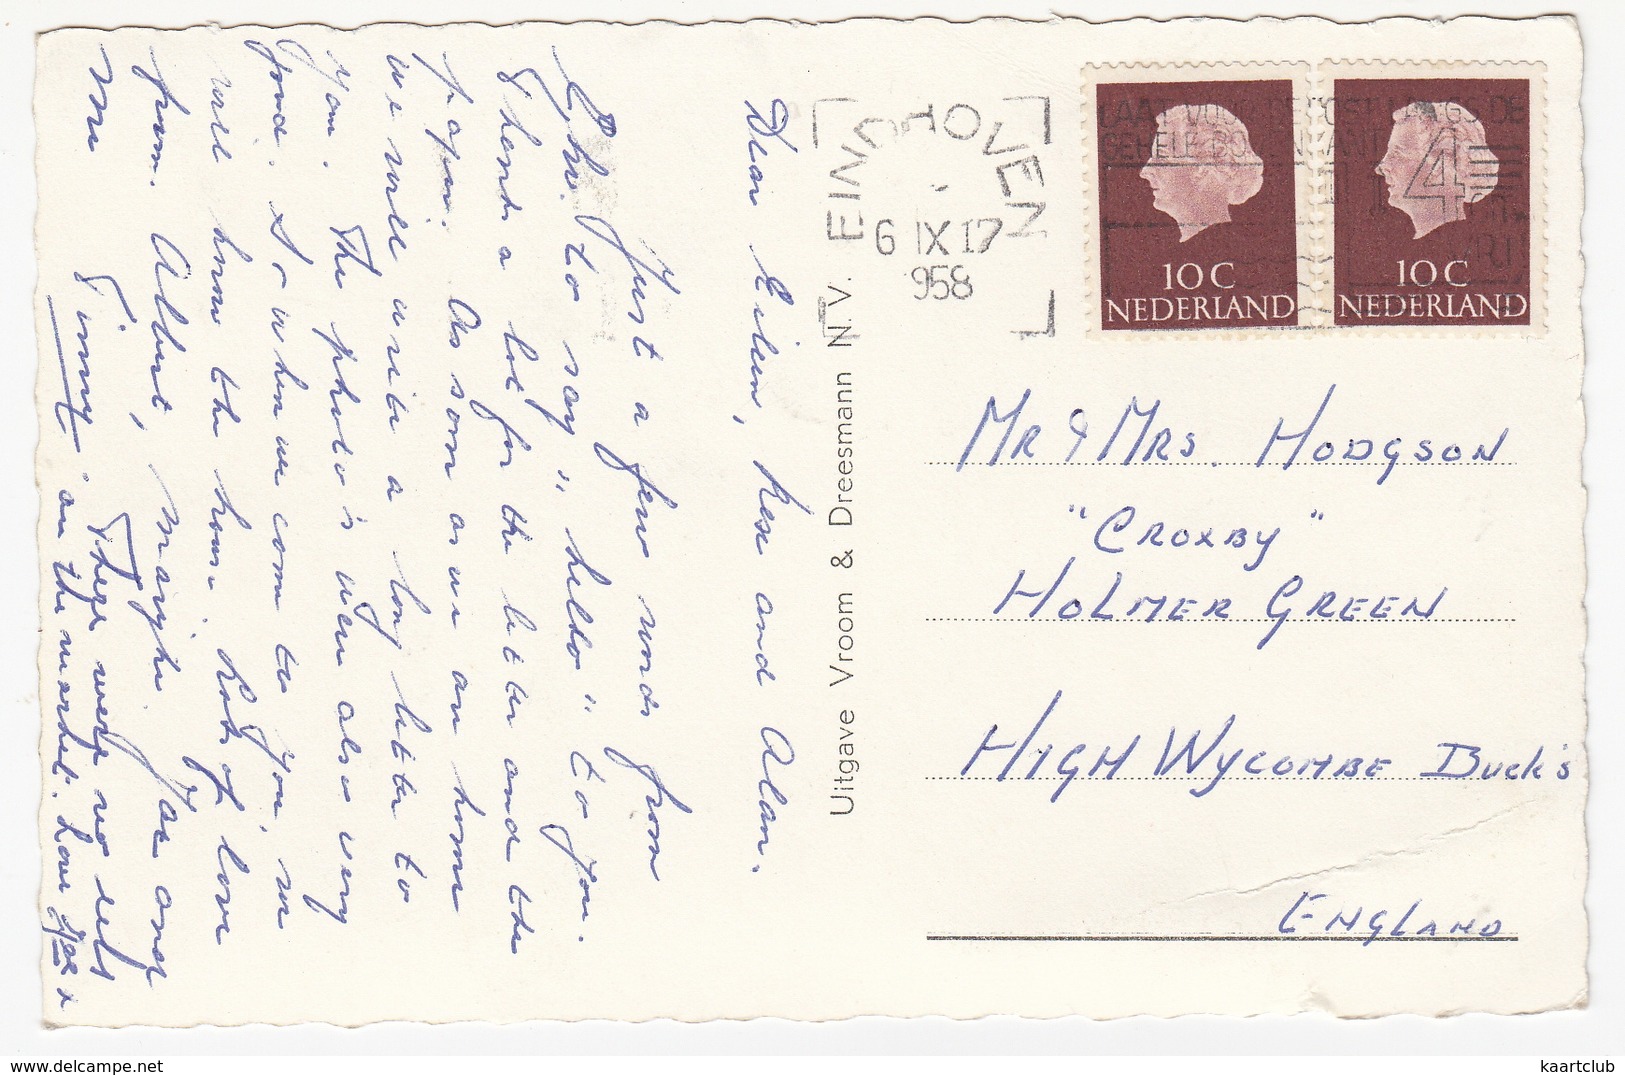 Dear Eileen, Kees and Alan.
Just a few words from
to say "hello" to you.
Thanks a lot for the letter and the
paper. As soon as we are home
we will write a long letter to
you. The photo's were also very
good. So when we come to you, we
will home the house. Lots of love
from. Albert, Marijke. Jac and
Timmy.
There were no eels
on the market. Love Jac x
Uitgave Vroom & Dreesmann N.V.
EINDHOVEN
6 IX 17
1958
LAAT VOOR DE POST LANGS DE
GEHELE BOVENKANT
4 cm
VRIJ
10 C
NEDERLAND
10 C
NEDERLAND
MR & MRS. HODGSON
"CROXBY"
HOLMER GREEN
HIGH WYCOMBE Buck's
ENGLAND
kaartclub